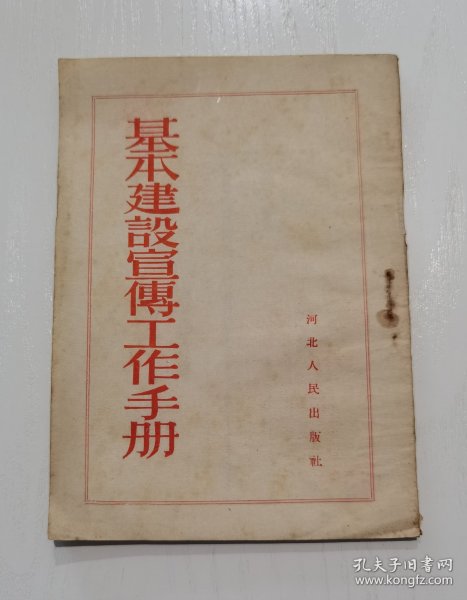 基本建設宣傳工作手册
河北人民出版社
孔夫子旧书网
www.kongfz.com